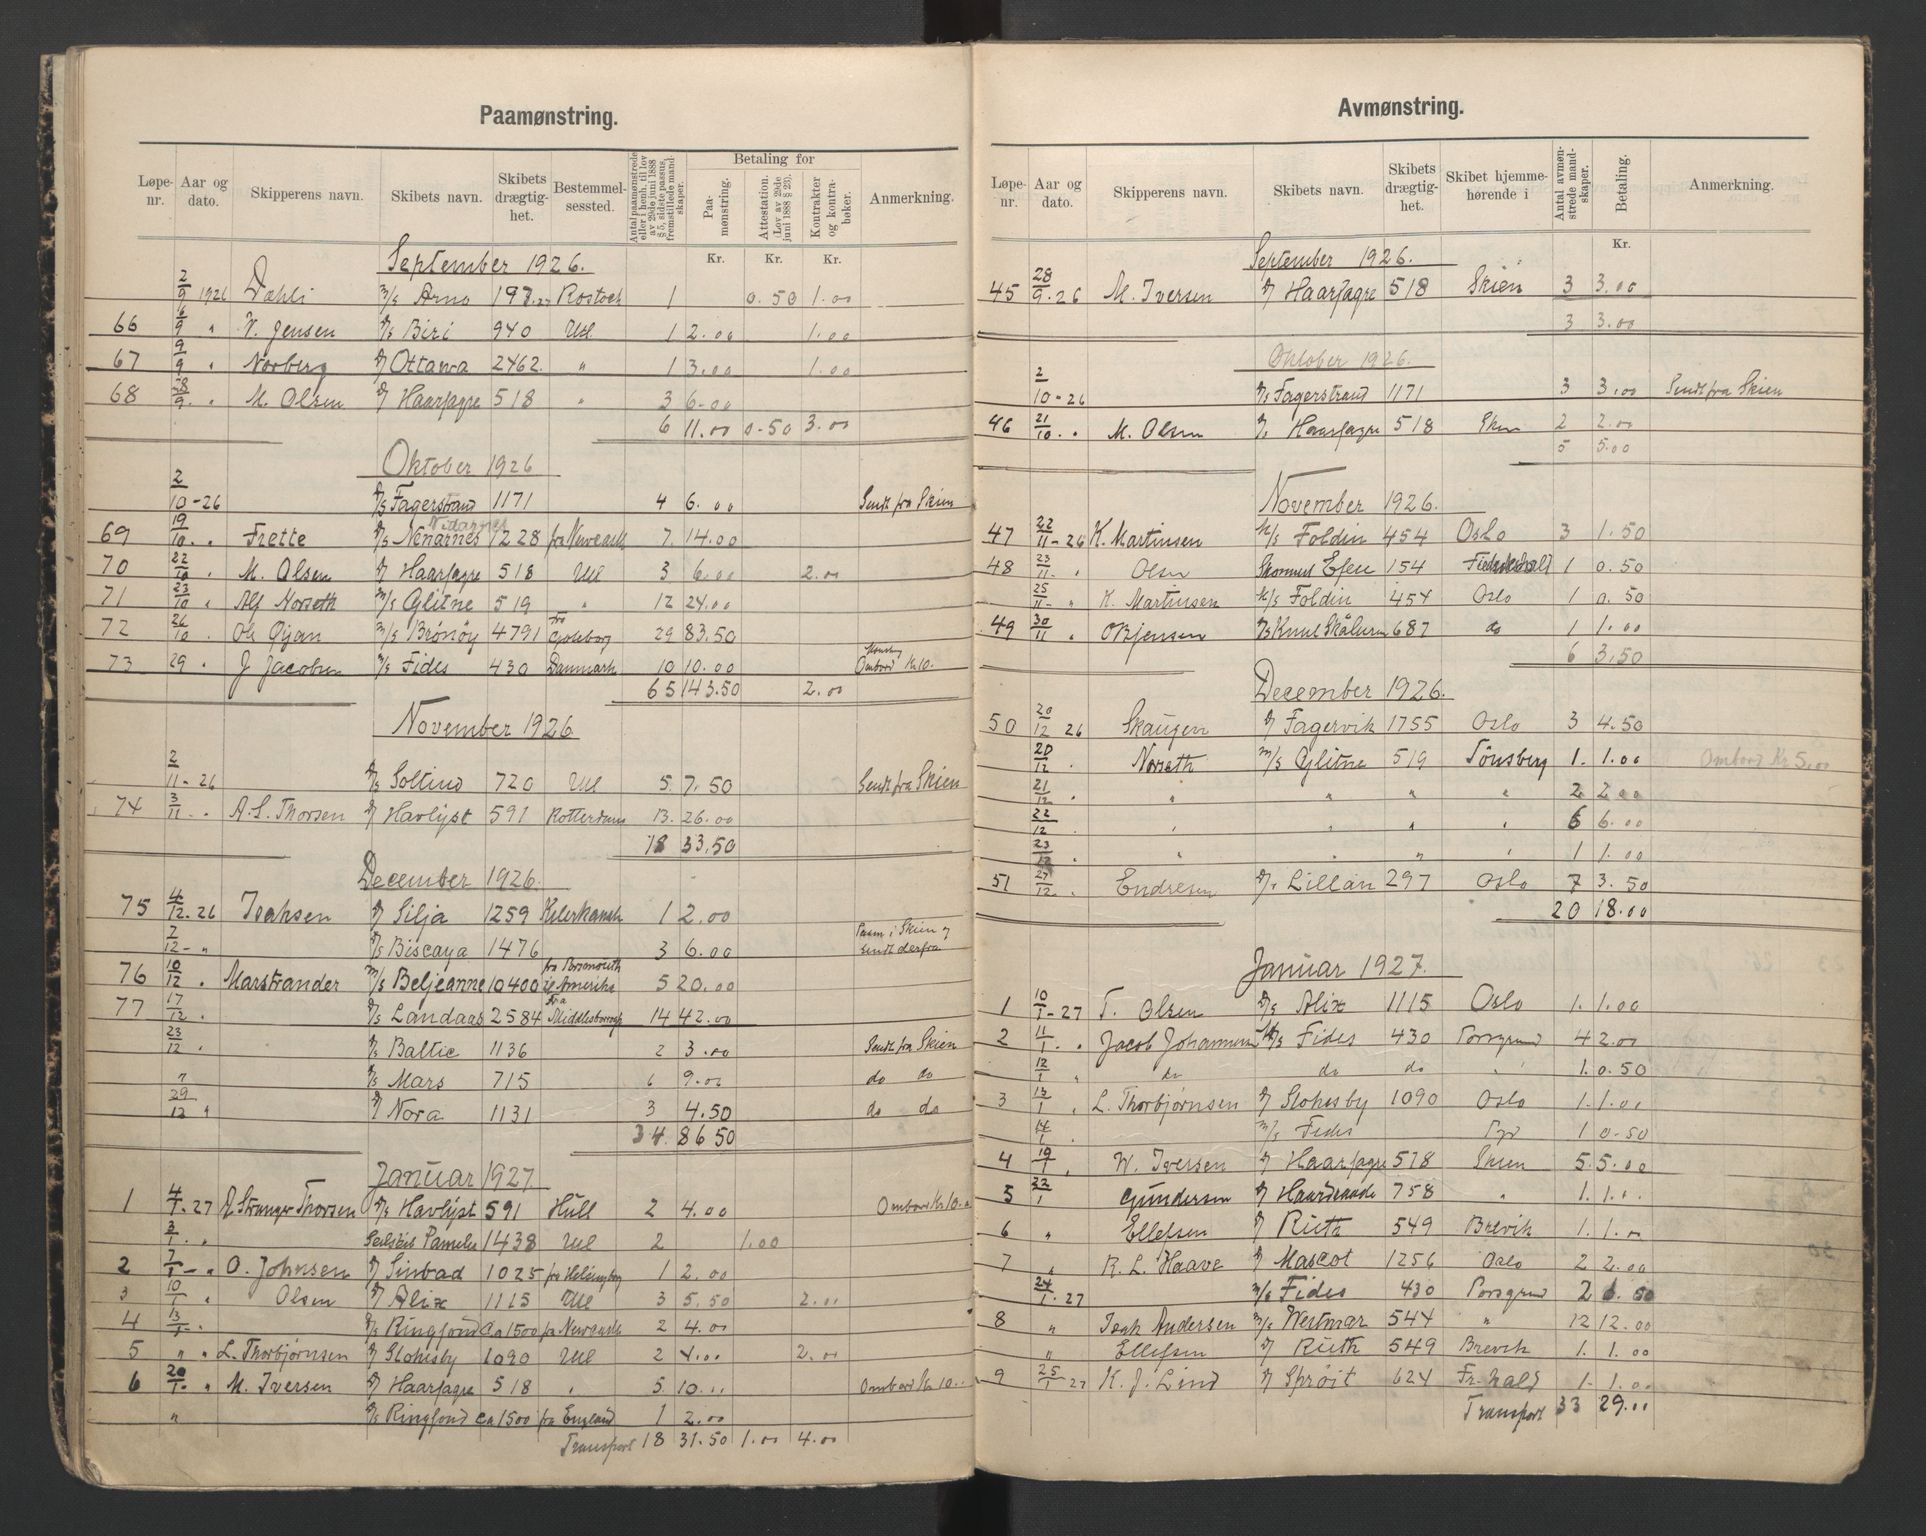 Paamønstring.
Løpe-nr. Aar og dato. Skipperens navn. Skibets navn. Skibets drægtig-het. Bestemmel-sessted. Antal paamønstrede eller i henh. til lov av 29de juni 1888 § 5, sidste passus, fremstillede mand-skaper. Betaling for Paa-mønstring. Attestation. (Lov av 29de juni 1888 § 23). Kontrakter og kontra-bøker. Anmerkning.
Kr. Kr. Kr.
September 1926.
2/9 1926 Dahli M/S Arno Rostock 1 0.50 1.00
66 6/9 " W. Jensen D/S Biri 940 Utl 1 2.00 1.00
67 9/9 " Norberg D/ Ottawa 2462 " 1 3.00 1.00
68 28/9 " M. Olsen D/ Haarfagre 518 " 3 6.00
6 11.00 0.50 3.00
Oktober 1926
2/10-26 D/S Fagerstrand 1171 4 6.00 Sendt fra Skien
69 19/10 " Frette D/S Nenarnes Vidarnes 1228 fra Newcastle 7 14.00
70 22/10 " M. Olsen D/ Haarfagre 518 Utl 3 6.00 2.00
71 23/10 " Alf Norseth M/S Glitne 519 " 12 24.00
72 26/10 " Ole Øyan M/S Brønøy 4791 Fra Goteborg 29 83.50
73 29 " J Jacobsen M/S Fides 430 Danmark 10 10.00 Ombord Kr 10.
65 143.50 2.00
November 1926
2/11-26 D/S Soltind 720 Utl 5 7.50 Sendt fra Skien
74 3/11 " A. L. Thorsen D/ Havlyst 591 Rotterdam 13. 26.00
18 33.50
December 1926.
75 4/12.26 Isaksen D/ Silja 1259 1 2.00
7/12- " D/S Biscaya 1476 3 6.00 Paam i Skien og sendt derfra
76 10/12 " Marstrander M/S Beljeanne 10400 5 20.00
77 17/12 " D/S Landaas 2584 Fra Middlesborough 14 42.00
23/12 " D/S Baltic 1136 2 3.00 Sendt fra Skien
" D/S Mars 715 6 9.00 do do
29/12 " D/ Nora 1131 3 4.50 do do
34. 86.50
Januar 1927.
1 4/1.27 A. Stranger Thorsen D/S Havlyst 591 Hull 2 4.00 Ombord Kr 10.
3/1. " Seilskib Pamelia 1438 Utl 2 1.00
2 7/1- " O. Johnsen D/ Sinbad 1025 fra Helsingborg 1 2.00
3 10/1 " Olsen D/ Alix 1115 Utl 3 5.50 2.00
4 13/1- " D/S Ringfond ca 1500 fra Newcastle 2 4.00
5 " " L. Thorbjørnsen D/ Slokesby 1090 Utl 2 4.00 2.00
6 20/1 " M. Iversen D/ Haarfagre 518 " 5 10." Ombord Kr 10.
" D/S Ringfond ca 1500 fra England 1 2.00
Transport 18 31.50 1.00 4.00
Avmønstring.
Løpe-nr. Aar og dato. Skipperens navn. Skibets navn. Skibets drægtig-het. Skibet hjemme-hørende i Antal avmøn-strede mand-skaper. Betaling. Anmerkning.
Kr.
September 1926.
45 28/9.26 M. Iversen D/ Haarfagre 518 Skien 3 3.00
3 3.00
Oktober 1926.
2/10-26 D/S Fagerstrand 1171 3 3.00 Sendt fra Skien
46 21/10 " M. Olsen D/S Haarfagre 518 Skien 2 2.00
5 5.00
November 1926.
47 22/11-26 K. Martinsen M/S Foldin 454 Oslo 3 1.50
48 23/11 " Olsen Skonnert Efeu 154 Fredrikshald 1 0.50
25/11- " K. Martinsen M/S Foldin 454 Oslo 1 0.50
49 30/11 " O Bjensen D/S Knut Skålurn 687 do 1 1.00
6 3.50
December 1926.
50 20/12 26 Skaugen D/ Fagervik 1755 Oslo 3 4.50
20/12. Norseth M/S Glitne 519 Tönsberg 1. 1.00 Ombord Kr 5.00
21/12 " " " " " 2 2.00
22/12 " " " " " 6 6.00
23/12 " " " " " 1 1.00
51 27/12 " Endresen D/S Lillan 297 Oslo 7 3.50
20 18.00
Januar 1927.
1 10/1-27 T. Olsen D/S Alix 1115 Oslo 1. 1.00
2 11/1. " Jacob Johannesen M/S Fides 430 Porsgrund 4 2.00
12/1 " do do do " 1. 0.50
3 13/1 " L. Thorbjørnsen D/ Slokesby 1090 Oslo 1. 1.00
14/1 M/S Fides Pgr 1 0.50
4 19/1 " W. Iversen D/ Haarfagre 518 Skien 5. 5.00
5 22/1 Gundersen D/ Haardraade 758 " 1. 1.00
6 " Ellefsen D/ Ruth 549 Brevik 1. 1.00
7 " R. L. Haave D/ Mascot 1256 Oslo 2 2.00
24/1.27 M/S Fides 430 Porsgrund 2 50
8 " Isak Andersen M/S Westmar 544 " 12 12.00
" Ellefsen D/ Ruth 549 Brevik 1. 1.00
9 25/1 27 K. J. Lind D/ Sprøit 624 Fr-hald 1. 1.00
Transport 33 29.00